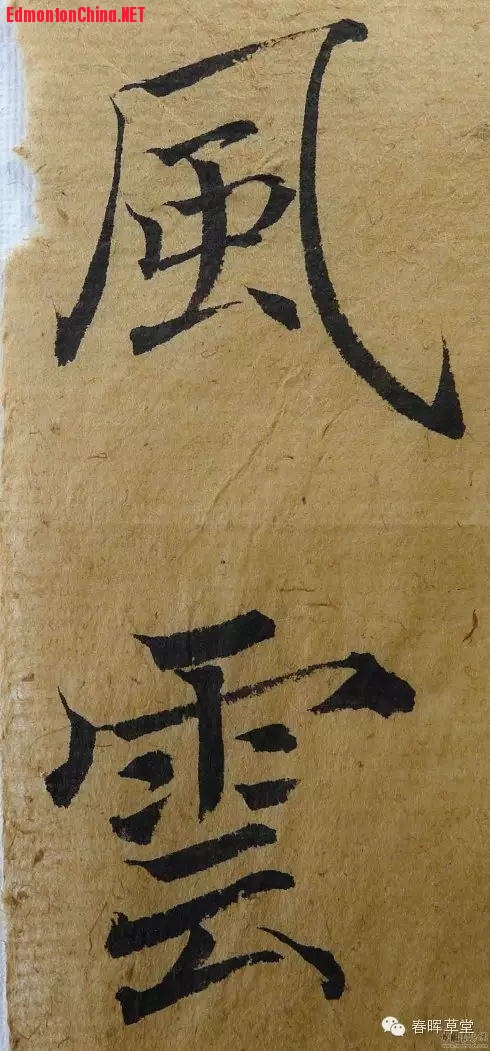 EdmontonChina.NET
風
雲
春晖草堂